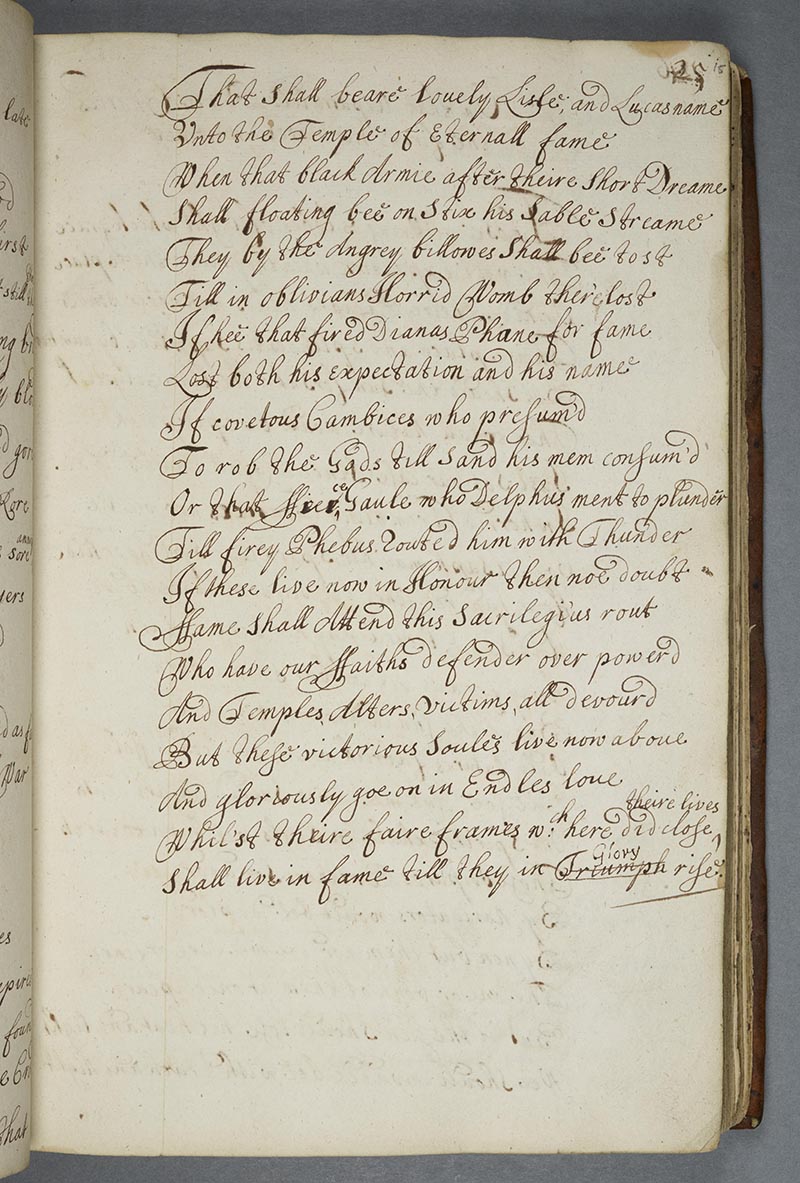 25 15
That shall beare lovely Lisle, and Lucas name
Unto the Temple of Eternall fame
When that black Armie after theire short Dreame
Shall floating bee on Stix his Sable Streame
They by the Angrey billowes Shall bee tost
Till in oblivians Horrid Womb there lost
If hee that fired Dianas Phane for fame
Lost both his expectation and his name
If covetous Cambices who presum'd
To rob the Gods till Sand his mem consum'd
Or that ffierce Gaule who Delphus ment to plunder
Till firey Phebus Routed him with Thunder
If these live now in Honour then noe doubt
ffame shall Attend this Sacrilegius rout
Who have our ffaiths defender over powerd
And Temples, Alters, victims, all devourd
But these victorious Soules live now above
And gloriously goe on in Endles love
Whil'st theire faire frames wch here did close theire lives
Shall live in fame till they in Triumph Glory rise.
late